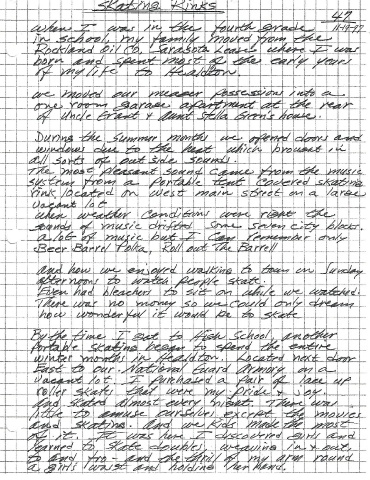 Skating Rinks
47
11-17-77
when I was in the fourth grade
in school, my family moved from the
Rockland Oil Co. Sarasota Lease where I was
born and spent most of the early years
of my life to Healdton.
we moved our meager possessions into a
one room garage apartment at the rear
of Uncle Grant & Aunt Stella house.
During the summer months we opened doors and
windows due to the heat which brought in
all sorts of out side sounds.
The most pleasant sound came from the music
system from a portable tent covered skating
rink located on west main street on a large
vacant lot
when weather conditions were right the
sounds of music drifted some seven city blocks.
a lot of music but I can remember only
Beer Barrel Polka, Roll out The Barrell
and how we enjoyed walking to town on Sunday
afternoons to watch people skate.
Even had bleacher to sit on while we watched.
There was no money so we could only dream
how wonderful it would be to skate
By the time I got to High School, another
portable skating began to spend the entire
winter months in Healdton. Located next door
East to our National Guard Armory on a
vacant lot. I purchased a pair of lace up
roller skates that were my pride & joy.
and skated almost every night. There was
little to amuse ourselves except the movies
and skating. And we kids made the most
of it. It was here I discovered girls and
learned to skate doubles, weaving in & out,
to and fro - and the thrill of my arm round
a girls waist and holding her hand.